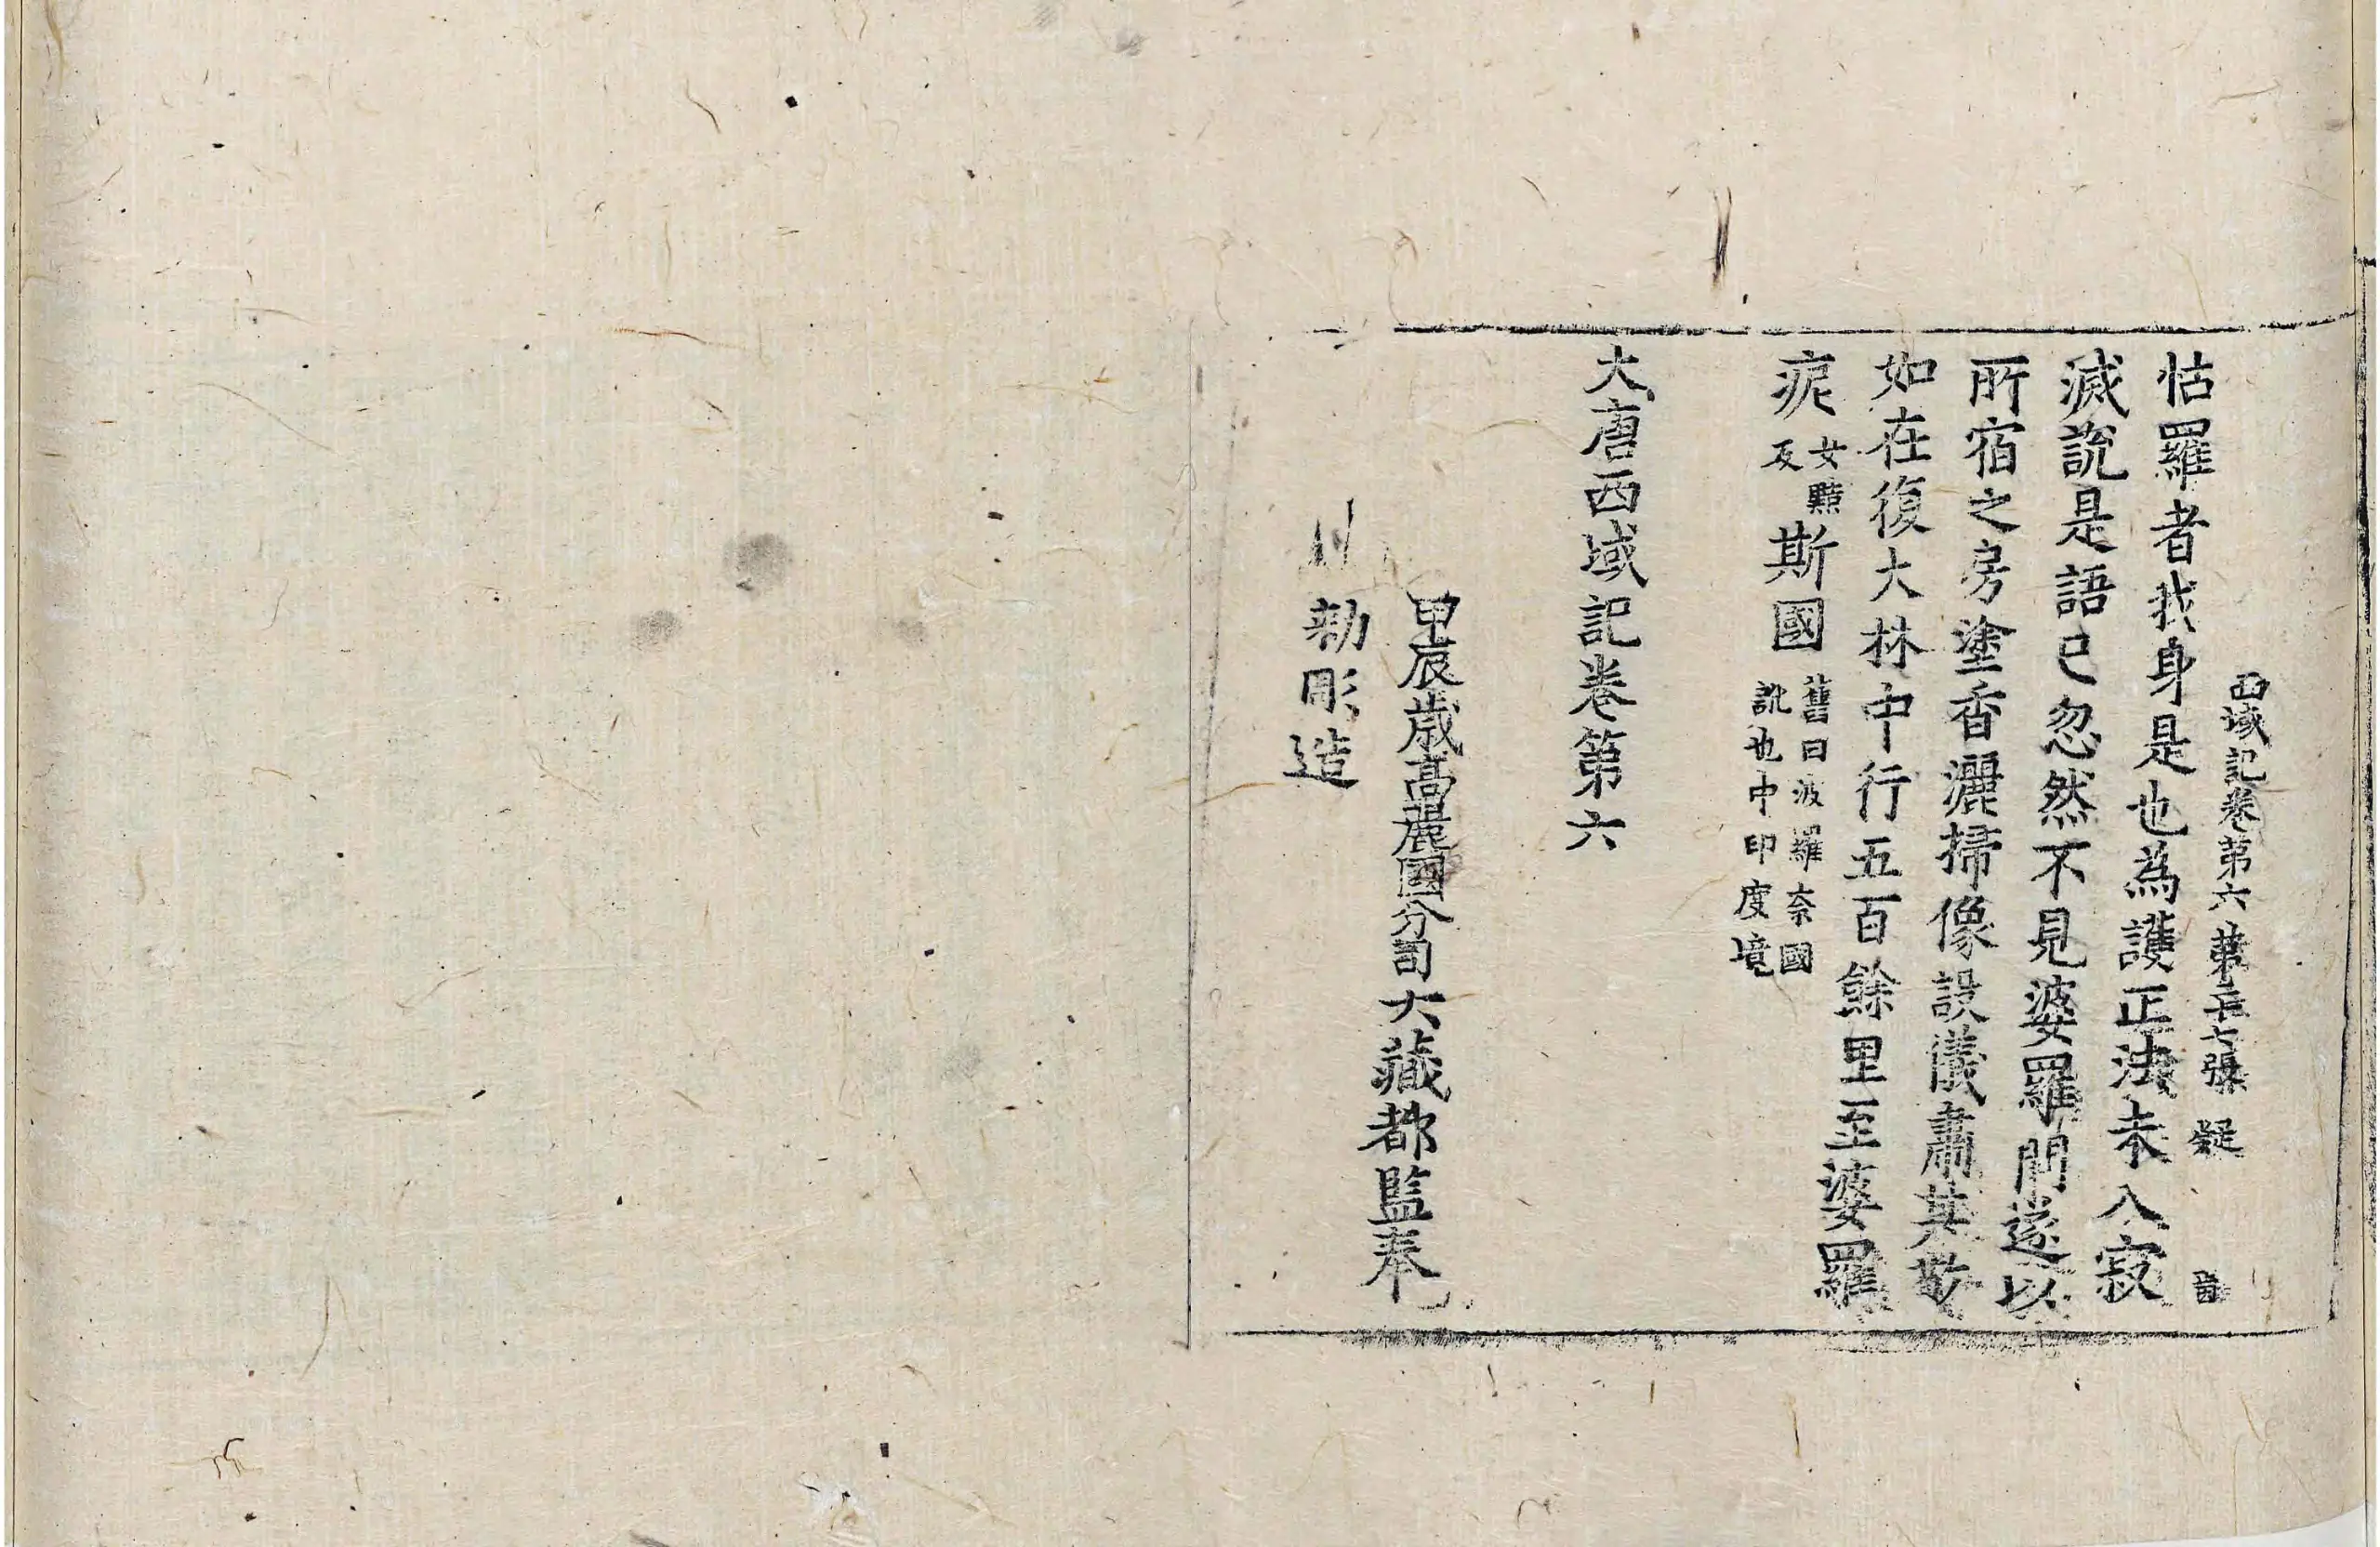 西域記卷第六 第二十七張 疑
怙羅者我身是也為護正法未入寂
滅說是語已忽然不見婆羅門遂以
所宿之房塗香灑掃像設儀肅其敬
如在復大林中行五百餘里至婆羅
痆女黠反斯國舊曰波羅奈國訛也中印度境
大唐西域記卷第六
甲辰歲高麗國分司大藏都監奉
勅彫造